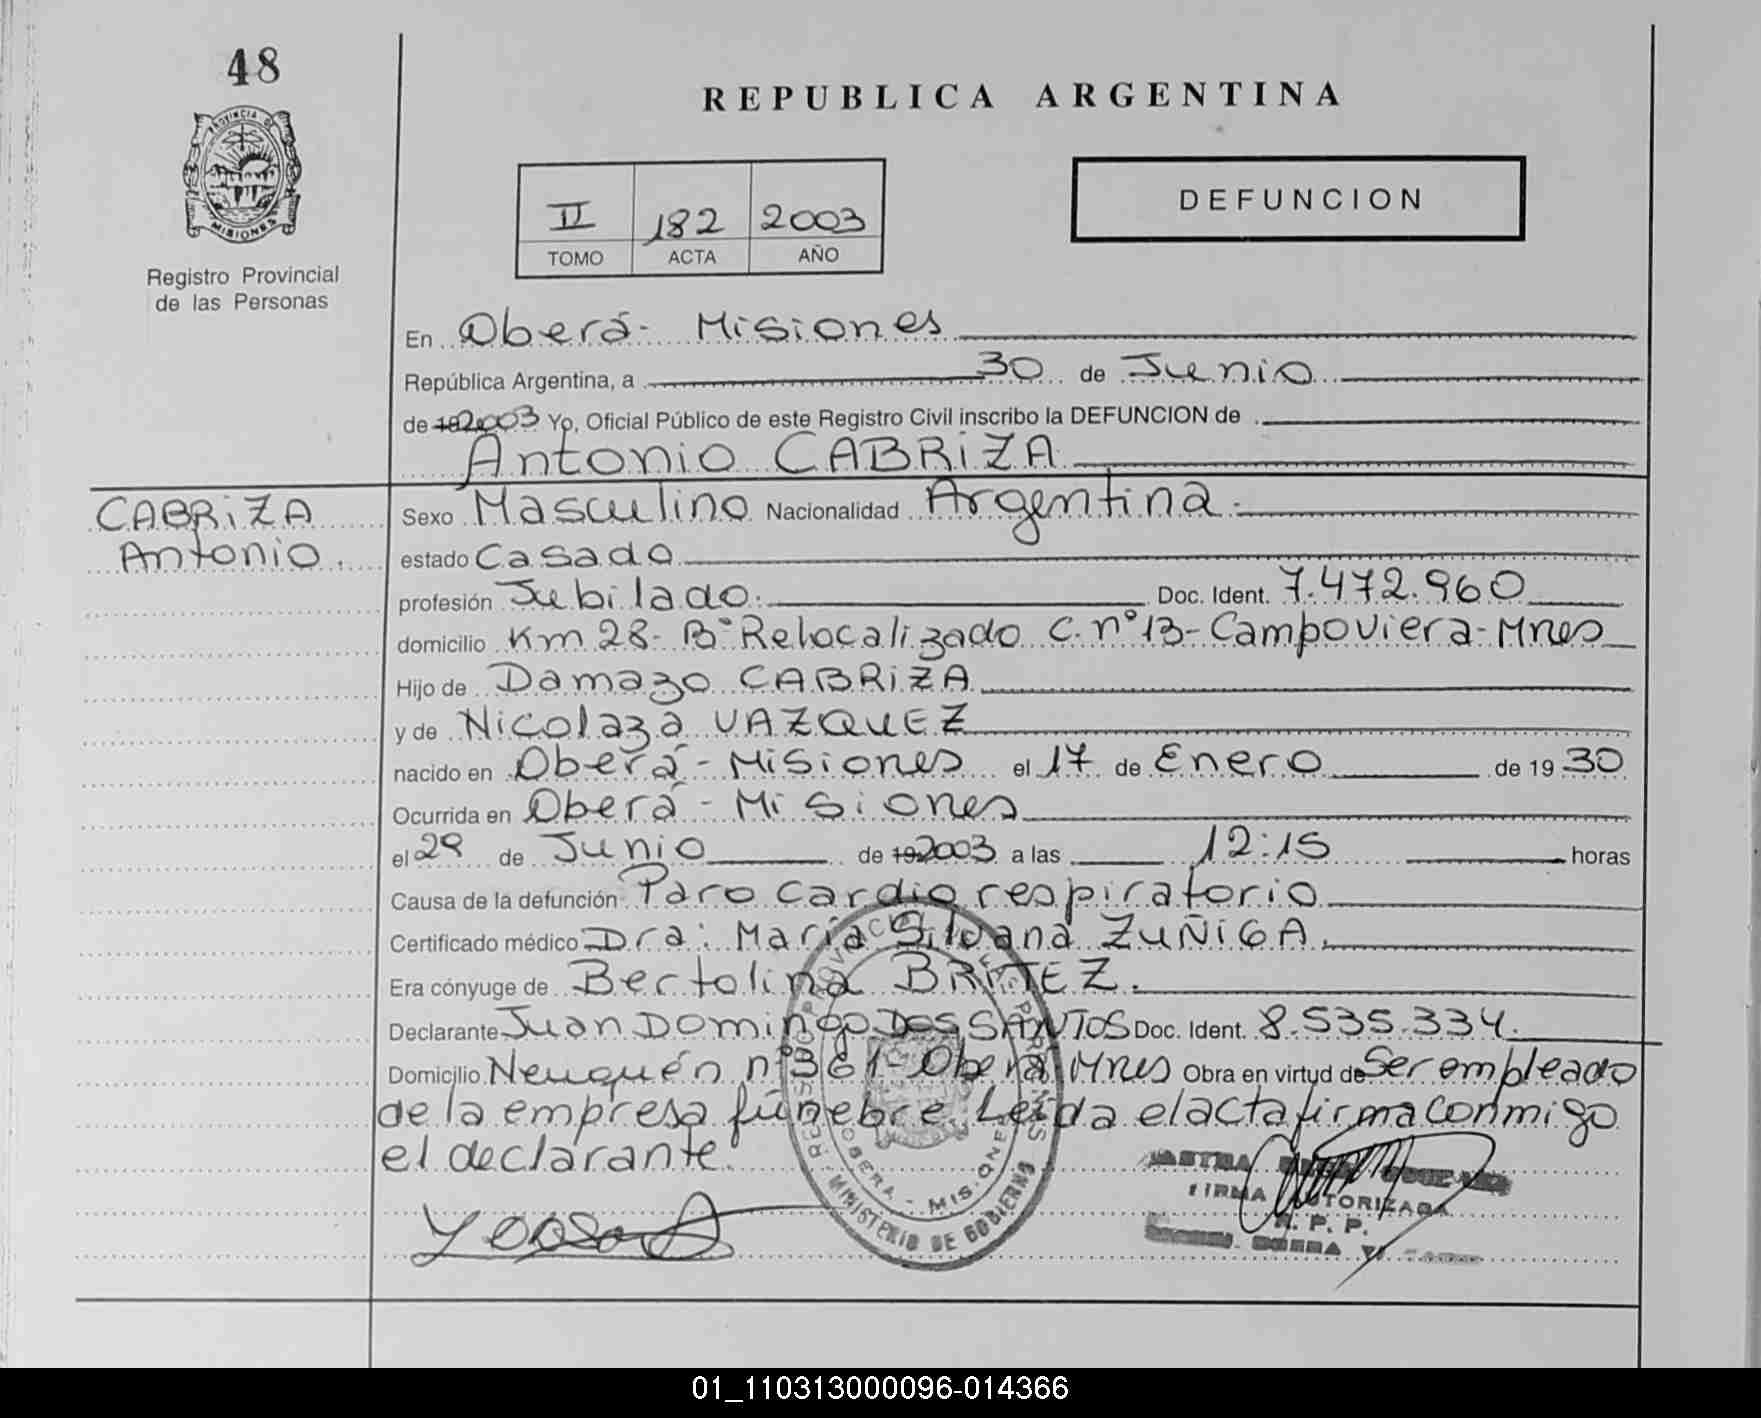 48
REPUBLICA ARGENTINA
PROVINCIA DE
MISIONES
Registro Provincial
de las Personas
II 182 2003
TOMO ACTA AÑO
DEFUNCION
En Oberá - Misiones
República Argentina, a 30 de Junio
de 19 2003 Yo, Oficial Público de este Registro Civil inscribo la DEFUNCION de
Antonio CABRiZA
CABRiZA
Antonio.
Sexo Masculino Nacionalidad Argentina.
estado Casado
profesión Jubilado. Doc. Ident. 7.472.960
domicilio Km 28- B° Relocalizado C. n° 13- Campoviera- Mnes
Hijo de Damazo CABRiZA
y de Nicolaza VAZQUEZ
nacido en Oberá - Misiones el 17 de Enero de 19 30
Ocurrida en Oberá - Misiones
el 29 de Junio de 19 2003 a las 12:15 horas
Causa de la defunción Paro cardio respiratorio
Certificado médico Dra: María Silvana ZUÑiGA.
Era cónyuge de Bertolina BRiTEZ.
Declarante Juan Domingo Dos SANTOS Doc. Ident. 8.535.334.
Domicilio Neuquén n° 361- Oberá Mnes Obra en virtud de Ser empleado
de la empresa fúnebre. Leída el acta firma conmigo
el declarante.
OBERA - MISIONES
MINISTERIO DE GOBIERNO
FIRMA AUTORIZADA
R. P. P.
01_110313000096-014366